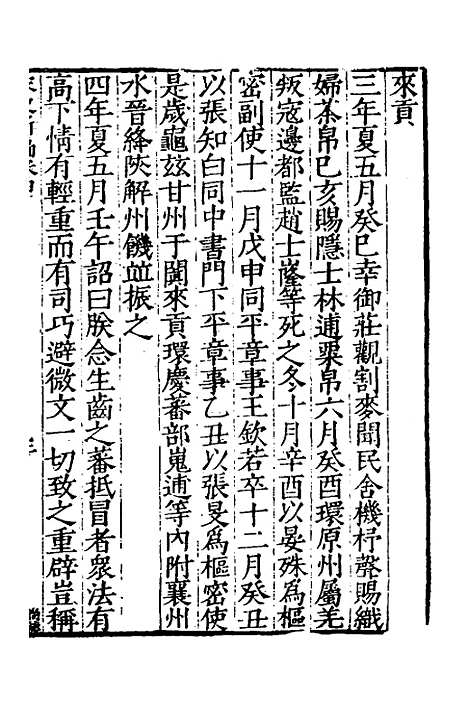 來貢
三年夏五月癸巳幸御莊觀割麥聞民舍機杼聲賜織
婦茶帛巳亥賜隱士林逋粟帛六月癸酉環原州屬羌
叛寇邊都監趙士隆等死之冬十月辛酉以晏殊爲樞
密副使十一月戊申同平章事王欽若卒十二月癸丑
以張知白同中書門下平章事乙丑以張旻爲樞密使
是歲龜玆甘州于闐來貢環慶蕃部嵬逋等內附襄州
水晉絳陝解州饑並振之
四年夏五月壬午詔曰朕念生齒之蕃抵冒者衆法有
高下情有輕重而有司巧避微文一切致之重辟豈稱